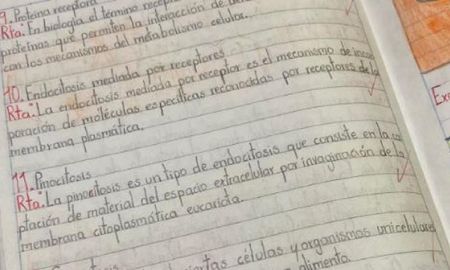 9. Proteína receptora
Rta: En biología el término
proteínas que permiten la interacción de
con los mecanismos del metabolismo celular.
10. Endocitosis mediada por receptores
Rta: La endocitosis mediada por receptor es el mecanismo de
poración de moléculas específicas reconocidas por receptores de la
membrana plasmática.
11. Pinocitosis
Rta: La pinocitosis es un tipo de endocitosis que consiste en la
ptación de material del espacio extracelular por invaginación de la
membrana citoplasmática eucariota.
células y organismos unicelulares
alimento.